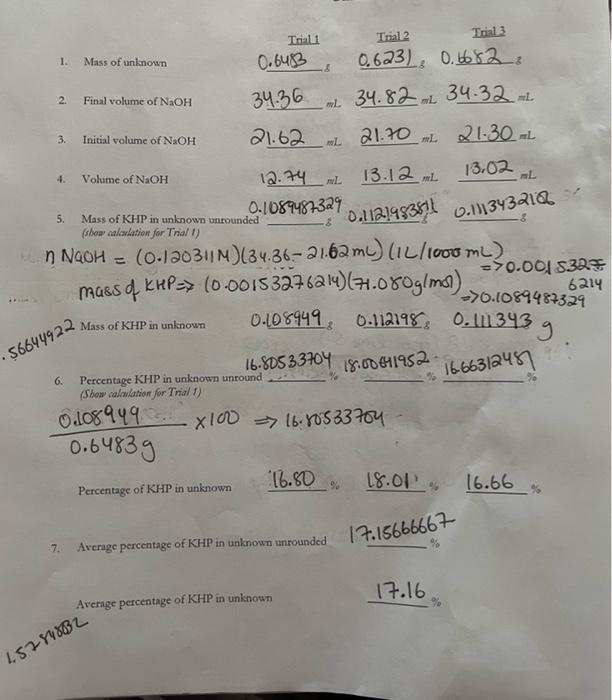 Trial 1 Trial 2 Trial 3
1. Mass of unknown 0.6483 g 0.6231 g 0.6682 g
2. Final volume of NaOH 34.36 mL 34.82 mL 34.32 mL
3. Initial volume of NaOH 21.62 mL 21.70 mL 21.30 mL
4. Volume of NaOH 12.74 mL 13.12 mL 13.02 mL
5. Mass of KHP in unknown unrounded 0.1089487329 g 0.1121983811 g 0.1113432102 g
(show calculation for Trial 1)
n NaOH = (0.120311M)(34.36-21.62mL)(1L/1000mL)
=>0.00153276214
mass of KHP=> (0.00153276214)(71.080g/mol)
=>0.1089487329
.56644922 Mass of KHP in unknown 0.108949 g 0.112198 g 0.111343 g
6. Percentage KHP in unknown unround 16.80533704 % 18.00641952 % 16.66312481 %
(Show calculation for Trial 1)
0.108949
0.6483g
×100 => 16.80533704
Percentage of KHP in unknown 16.80 % 18.01 % 16.66 %
7. Average percentage of KHP in unknown unrounded 17.15666667 %
Average percentage of KHP in unknown 17.16 %